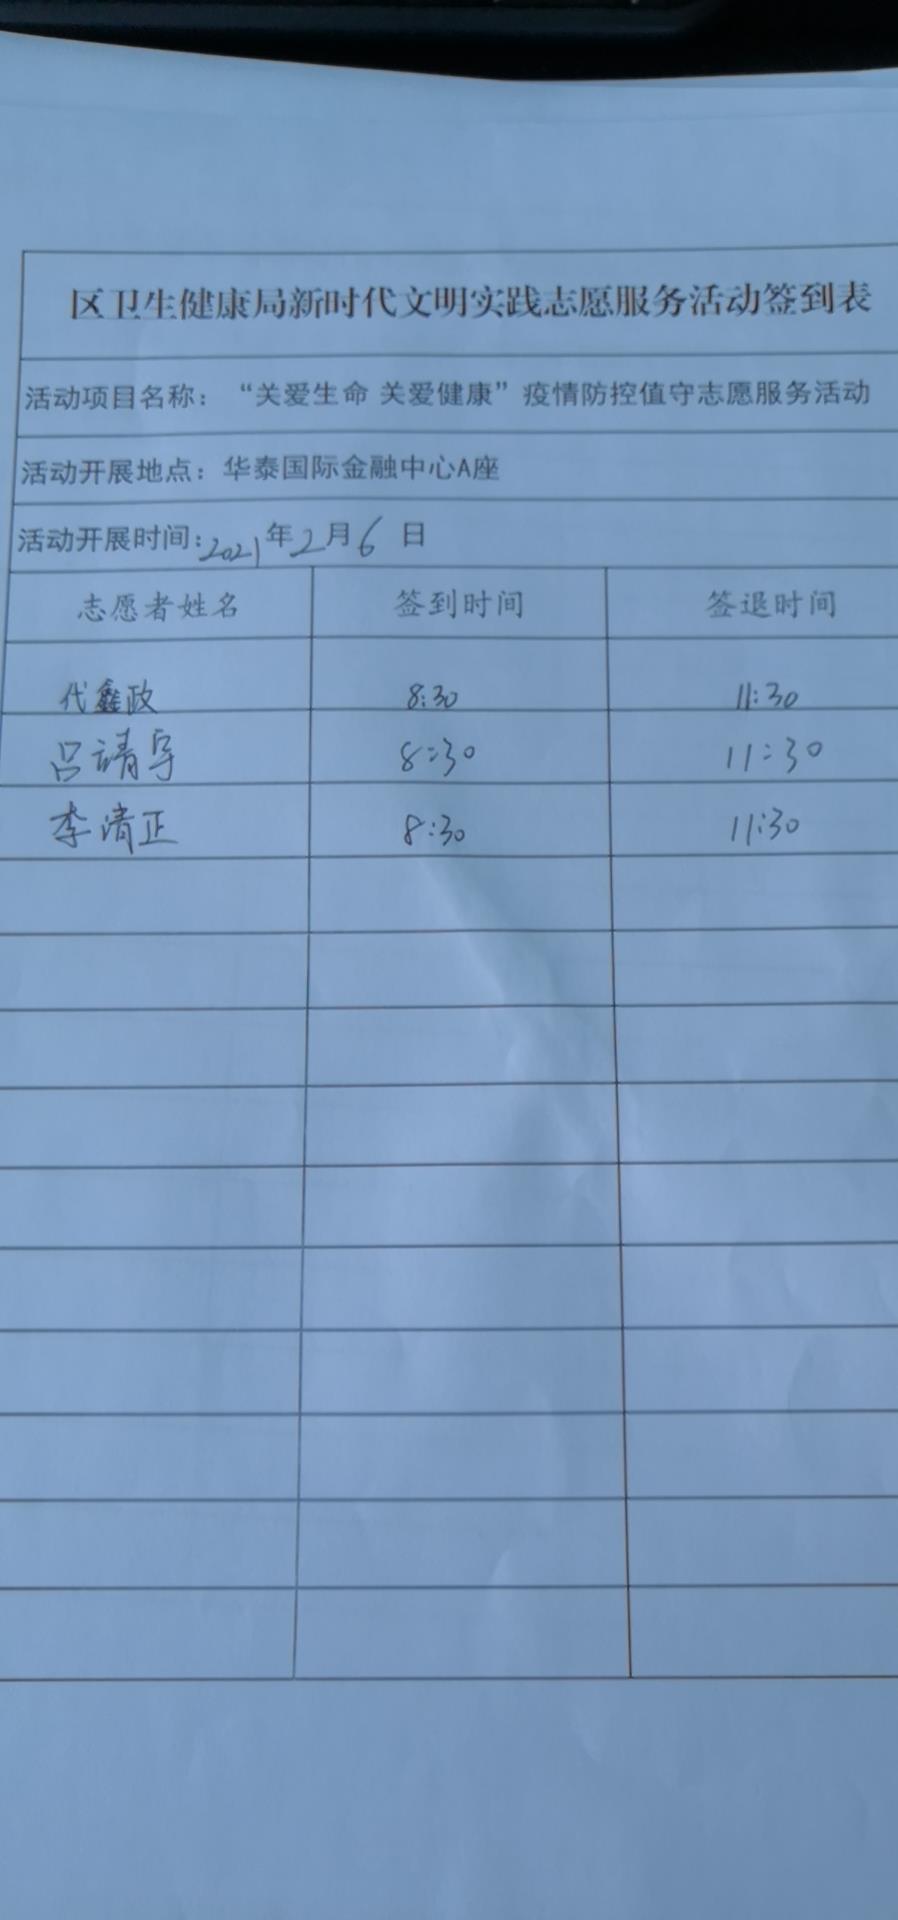 区卫生健康局新时代文明实践志愿服务活动签到表
活动项目名称：“关爱生命 关爱健康”疫情防控值守志愿服务活动
活动开展地点：华泰国际金融中心A座
活动开展时间：2021年2月6日
志愿者姓名 签到时间 签退时间
代鑫政 8:30 11:30
吕靖宇 8:30 11:30
李清正 8:30 11:30